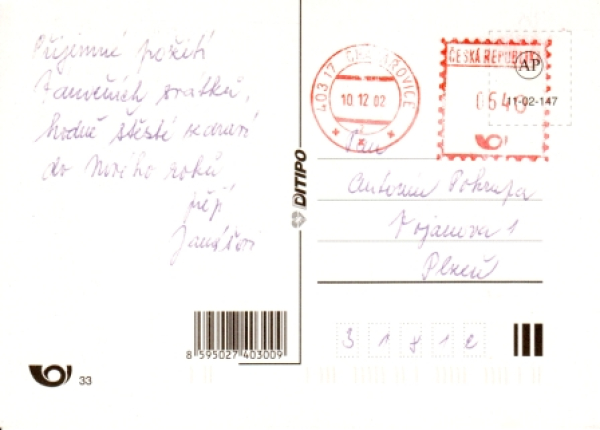 Příjemné požití
Vánočních svátků,
hodně štěstí zdraví
do Nového roku
přejí
Janášovi
8 595027 403009
33
DITIPO
403 17 CHABAŘOVICE
10 12 02
ČESKÁ REPUBLIKA
0640
AP
11-02-147
Pan
Antonín Pokrupa
Vojanova 1
Plzeň
3 1 8 1 2